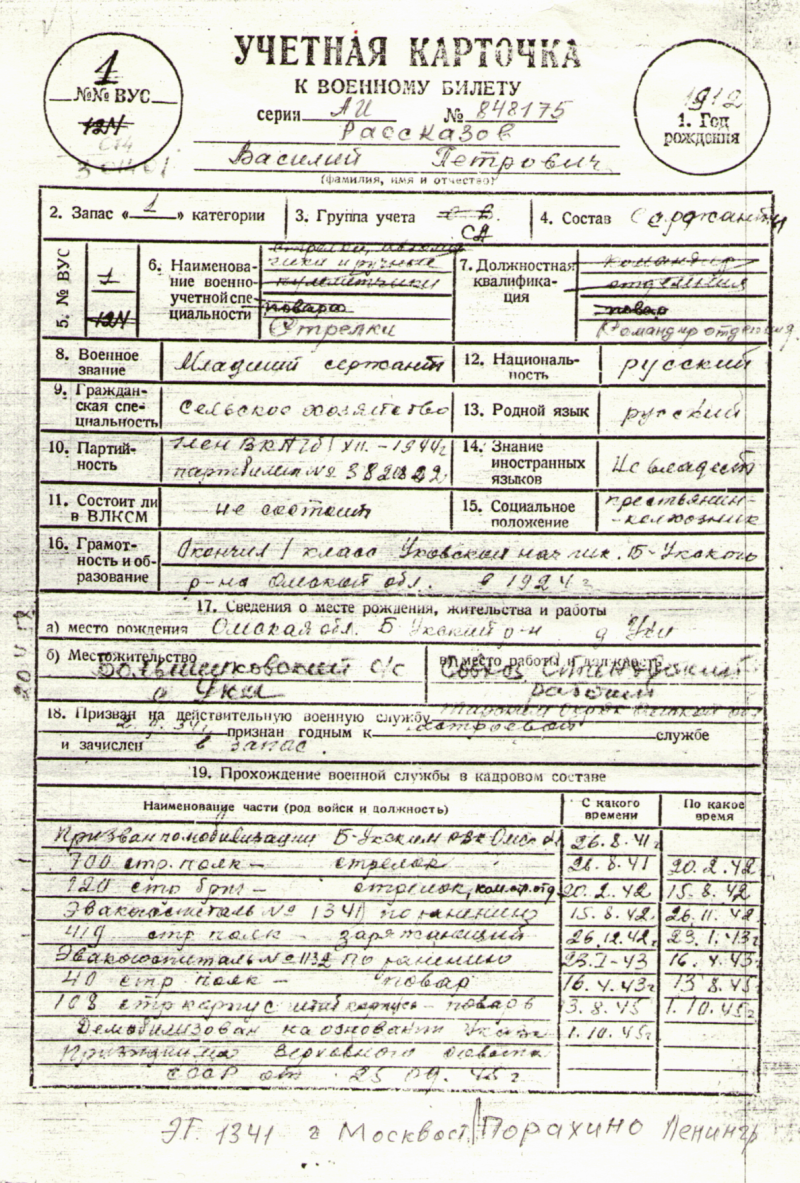 УЧЕТНАЯ КАРТОЧКА
К ВОЕННОМУ БИЛЕТУ
серия АИ № 848175
1
№№ ВУС
12И
1912
1. Год рождения
Рассказов
Василий Петрович
(фамилия, имя и отчество)
2. Запас «1» категории
3. Группа учета СА
4. Состав Сержанты
5. № ВУС 1 12И
6. Наименование военно-учетной специальности
повара
Стрелки
7. Должностная квалификация
командир отделения
повар
Командир отделения
8. Военное звание Младший сержант
12. Националь-ность русский
9. Граждан-ская спе-циальность Сельское хозяйство
13. Родной язык русский
10. Партий-ность член ВКП(б) XII.-1944г
партбилет №
14. Знание иностранных языков Не владеет
11. Состоит ли в ВЛКСМ не состоит
15. Социальное положение крестьянин-
-колхозник
16. Грамот-ность и об-разование Окончил 1 класс Уковской нач. шк. Б-Укского
р-на Омской обл. в 1924 г
17. Сведения о месте рождения, жительства и работы
а) место рождения Омская обл. Б Укский р-н д Уки
б) Местожительство Большеуковский с/с
с Уки
в) место работы и должность Совхоз
рабочий
18. Призван на действительную военную службу
признан годным к строевой службе
и зачислен в запас.
19. Прохождение военной службы в кадровом составе
Наименование части (род войск и должность)
С какого времени
По какое время
Призван по мобилизации Б-Укским РВК 26.8.41г
стр. полк - стрелок 26.8.41 20.2.42
120 стр бриг - стрелок, ком. отд 20.2.42 15.8.42
Эвакогоспиталь № 1341 по ранению 15.8.42г 26.11.42
419 стр полк - заряжающий 26.12.42г 23.1.43г
Эвакогоспиталь № 1132 по ранению 23.I-43 16.4.43г
40 стр полк - повар 16.4.43г 13 8.45
108 стр корпус повар 3.8.45 1.10.45г
Демобилизован на основании Указа 1.10.45г
Президиума Верховного Совета
СССР от 25 09.45 г
ЭГ. 1341 г Москва ст. Порахино Ленингр